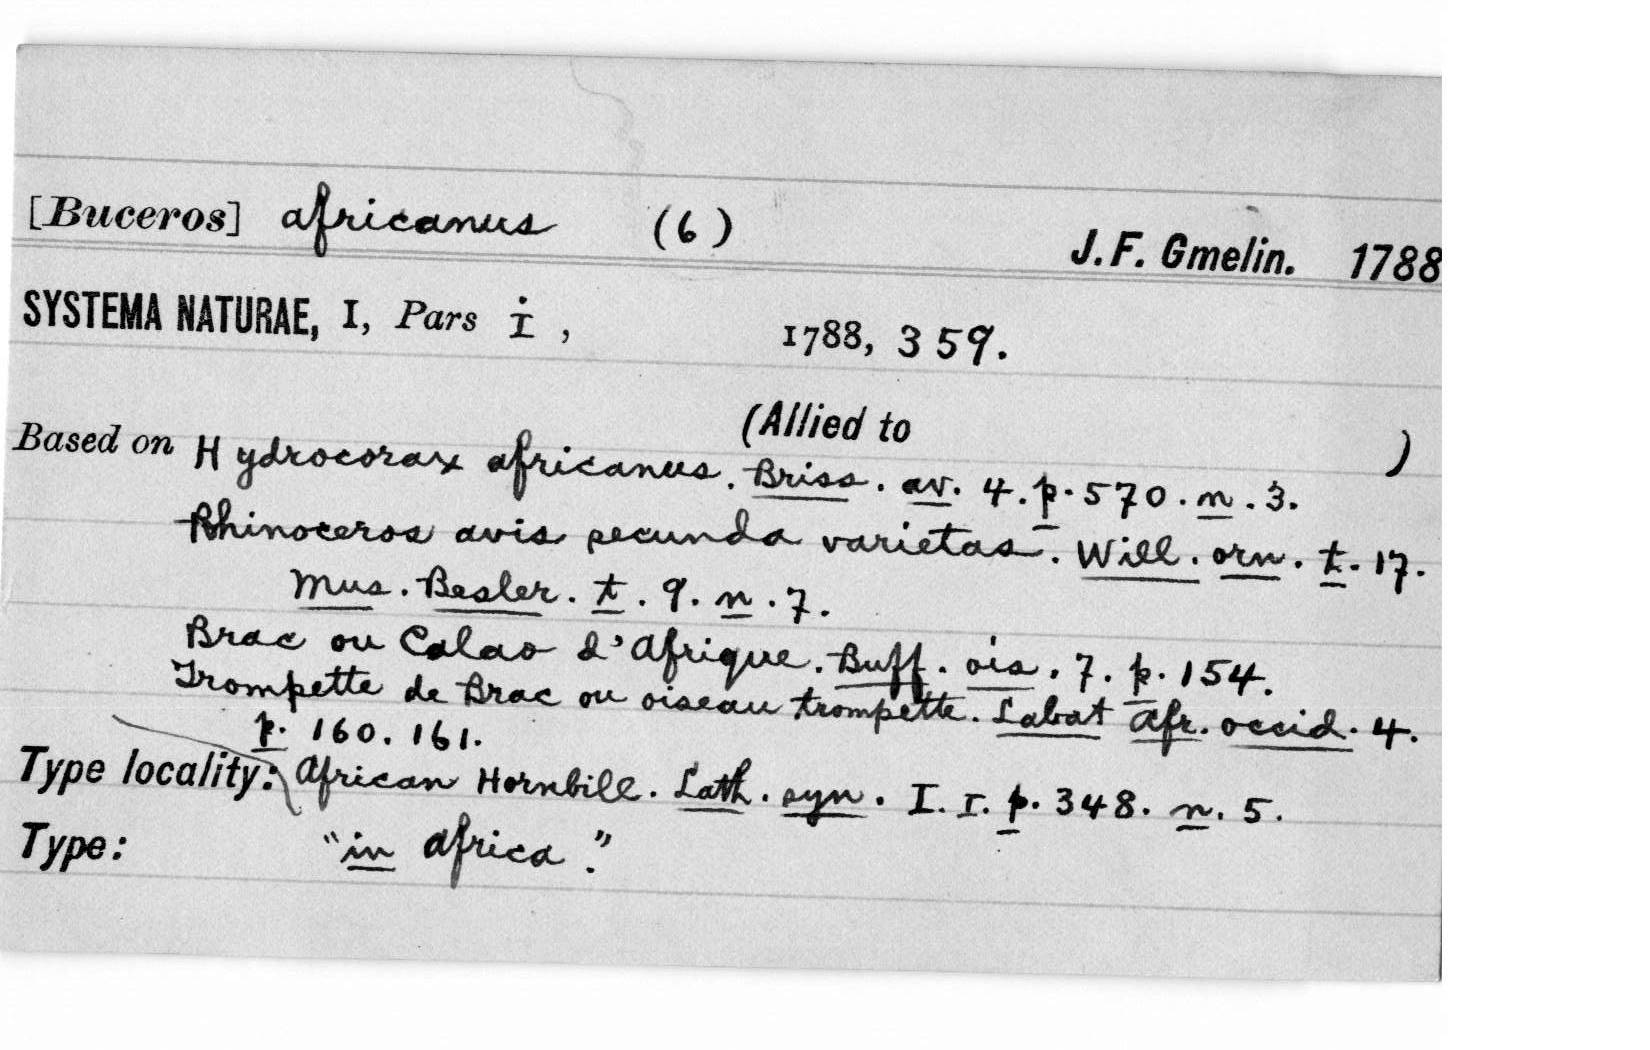 [Buceros] africanus (6) J. F. Gmelin. 1788
SYSTEMA NATURAE, I, Pars i, 1788, 359.
(Allied to )
Based on Hydrocorax africanus. Briss. av. 4. p. 570. n. 3.
Rhinoceros avis secunda varietas. Will. orn. t. 17.
Mus. Besler. t. 9. n. 7.
Brac ou Calao d'Afrique. Buff. ois. 7. p. 154.
Trompette de Brac ou oiseau trompette. Labat Afr. occid. 4.
p. 160. 161.
Type locality: African Hornbill. Lath. syn. I. 1. p. 348. n. 5.
Type: "in Africa."